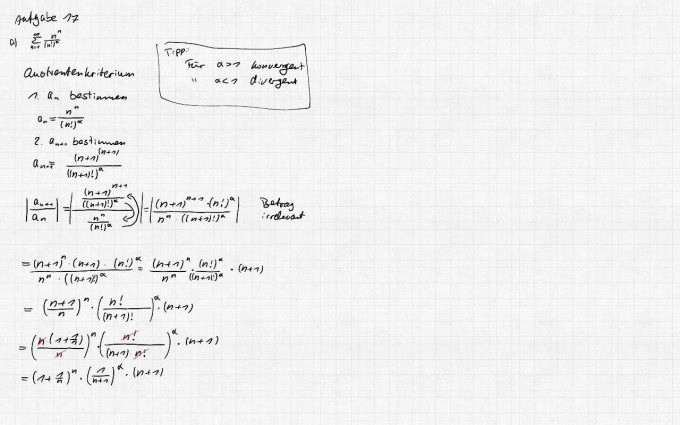 Aufgabe 17
a) ∑_{n=1}^{∞} n^n/(n!)^α
Tipp:
Für α>1 konvergent
" α<1 divergent
Quotientenkriterium
1. a_n bestimmen
a_n = n^n/(n!)^α
2. a_{n+1} bestimmen
a_{n+1} = (n+1)^{(n+1)}/((n+1)!)^α
|a_{n+1}/a_n| = |((n+1)^{n+1}/((n+1)!)^α)/(n^n/(n!)^α)| = |((n+1)^{n+1}·(n!)^α)/(n^n·((n+1)!)^α)| Betrag
irrelevant
= ((n+1)^n·(n+1)·(n!)^α)/(n^n·((n+1)!)^α) = (n+1)^n/n^n · (n!)^α/((n+1)!)^α · (n+1)
= ((n+1)/n)^n · (n!/(n+1)!)^α · (n+1)
= (n(1+1/n)/n)^n · (n!/((n+1)n!))^α · (n+1)
= (1+1/n)^n · (1/(n+1))^α · (n+1)